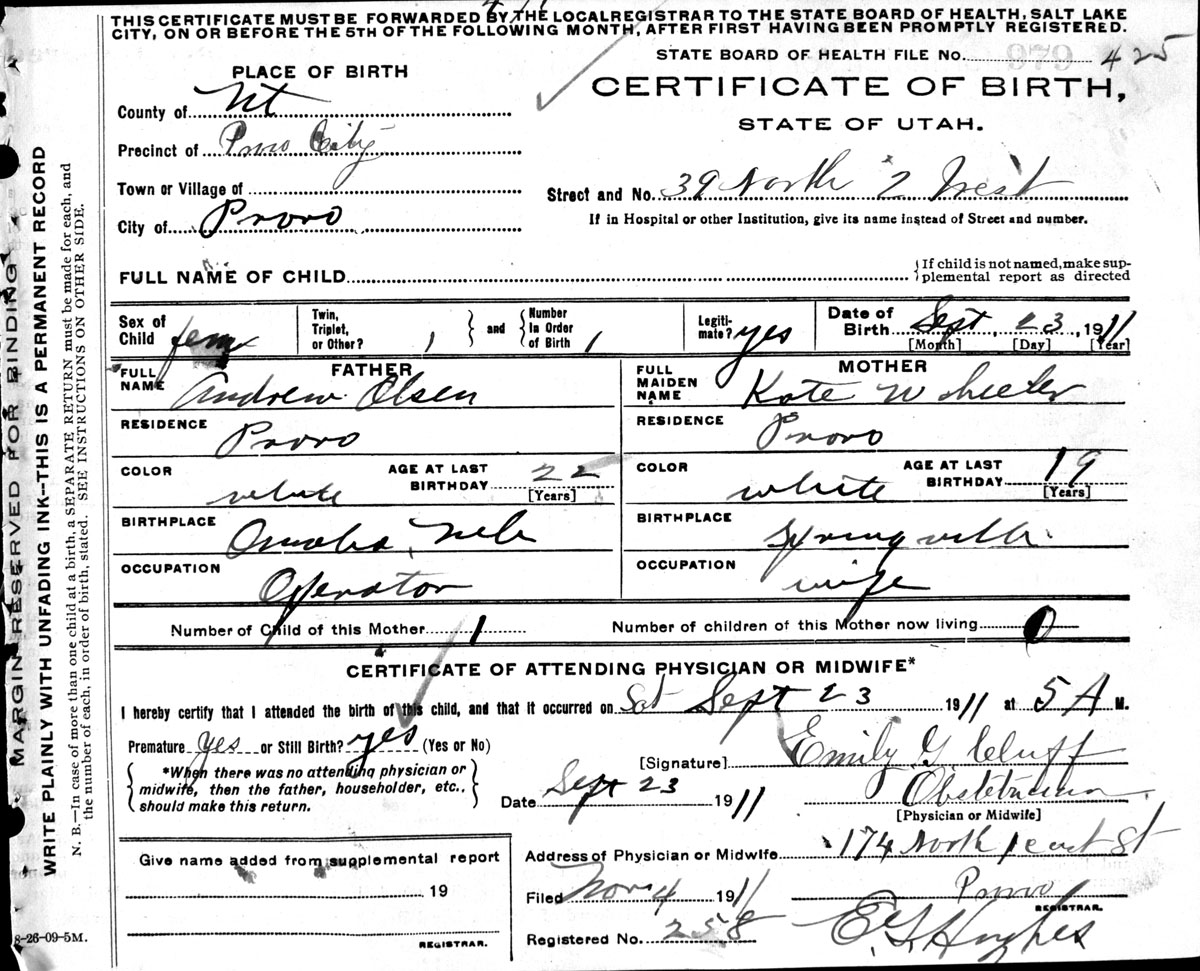 THIS CERTIFICATE MUST BE FORWARDED BY THE LOCAL REGISTRAR TO THE STATE BOARD OF HEALTH, SALT LAKE
CITY, ON OR BEFORE THE 5TH OF THE FOLLOWING MONTH, AFTER FIRST HAVING BEEN PROMPTLY REGISTERED.
STATE BOARD OF HEALTH FILE NO. 979 425
PLACE OF BIRTH
CERTIFICATE OF BIRTH,
STATE OF UTAH.
County of Ut
Precinct of Provo City
Town or Village of
Street and No. 39 North 2 West
City of Provo
If in Hospital or other Institution, give its name instead of Street and number.
FULL NAME OF CHILD
{If child is not named, make sup-
plemental report as directed
Sex of Child fem
Twin, Triplet, or Other? 1 } and { Number In Order of Birth 1
Legiti-mate? yes
Date of Birth Sept 23, 1911
[Month] [Day] [Year]
FATHER
FULL NAME Andrew Olsen
RESIDENCE Provo
COLOR white
AGE AT LAST BIRTHDAY 22 [Years]
BIRTHPLACE Omaha, Neb
OCCUPATION Operator
MOTHER
FULL MAIDEN NAME Kate Wheeler
RESIDENCE Provo
COLOR white
AGE AT LAST BIRTHDAY 19 [Years]
BIRTHPLACE Springville
OCCUPATION wife
Number of Child of this Mother 1
Number of children of this Mother now living 0
CERTIFICATE OF ATTENDING PHYSICIAN OR MIDWIFE*
I hereby certify that I attended the birth of this child, and that it occurred on Sat Sept 23 1911 at 5 A M.
Premature yes or Still Birth? yes (Yes or No)
[Signature] Emily G. Cluff
*When there was no attending physician or
midwife, then the father, householder, etc.,
should make this return.
Date Sept 23 1911
Obstetrician
[Physician or Midwife]
Give name added from supplemental report
19
REGISTRAR.
Address of Physician or Midwife 174 North 1 east St
Provo
Filed Nov 4 1911
REGISTRAR.
Registered No. 258
E. L. Hughes
8-26-09-5M.
MARGIN RESERVED FOR BINDING
WRITE PLAINLY WITH UNFADING INK--THIS IS A PERMANENT RECORD
N. B.—In case of more than one child at a birth, a SEPARATE RETURN must be made for each, and
the number of each, in order of birth, stated. SEE INSTRUCTIONS ON OTHER SIDE.